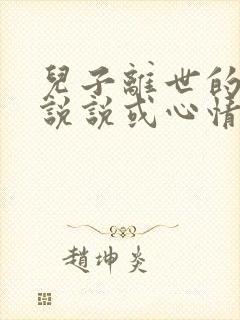 兒子離世的
說說或心情
趙坤炎